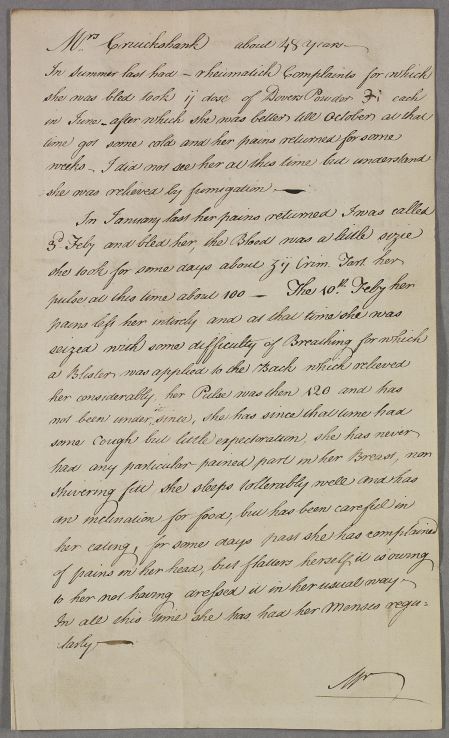 Mrs Cruickshank about 48 years
In summer last had – rheumatick Complaints for which
she was bled took ij dose of Dovers Powder ʒi each
in June – after which she was better till October at that
time got some cold and her pains returned for some
weeks – I did not see her at this time but understand
she was relieved by fumigation –
In January last her pains returned I was called
3d Feby and bled her, the Blood was a little sizie
she took for some days about ʒij Crim. Tart. her
pulse at this time about 100 – The 10th. Feby her
pains left her intirely and at that time she was
seized with some difficulty of Breathing for which
a Blister was applied to the Back which relieved
her considerably, her Pulse was then 120 and has
not been under it since, she has since that time had
some Cough but little expectoration, she has never
had any particular pained part in her Breast, nor
shivering fitt she sleeps tollerably well and has
an inclination for food, but has been carefull in
her eating, for some days past she has complained
of pains in her head, but flatters herself it is owing
to her not having dressed it in her usual way –
In all this time she has had her Menses regu-
larly –
Mr